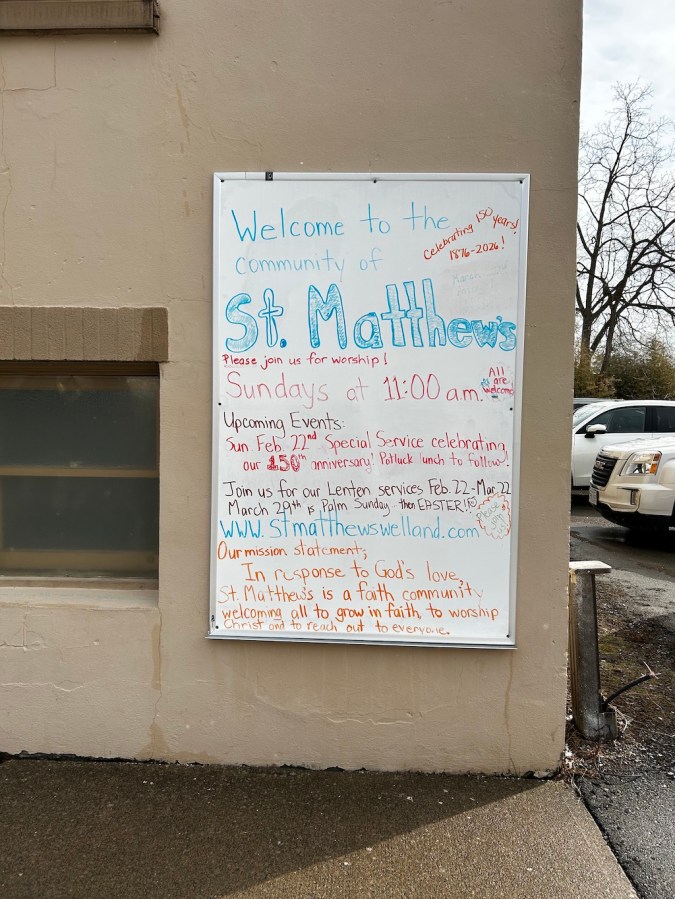 Welcome to the
Celebrating 150 years!
1876-2026!
community of
St. Matthew's
Please join us for worship!
Sundays at 11:00 a.m.
All
are
welcome
Upcoming Events:
Sun Feb. 22nd Special Service celebrating
our 150th anniversary! Potluck lunch to follow!
Join us for our Lenten services Feb. 22-Mar. 22
March 29th is Palm Sunday - then EASTER!!
www.stmatthewswelland.com
Our mission statement:
In response to God's love,
St. Matthew's is a faith community
welcoming all to grow in faith, to worship
Christ and to reach out to everyone.